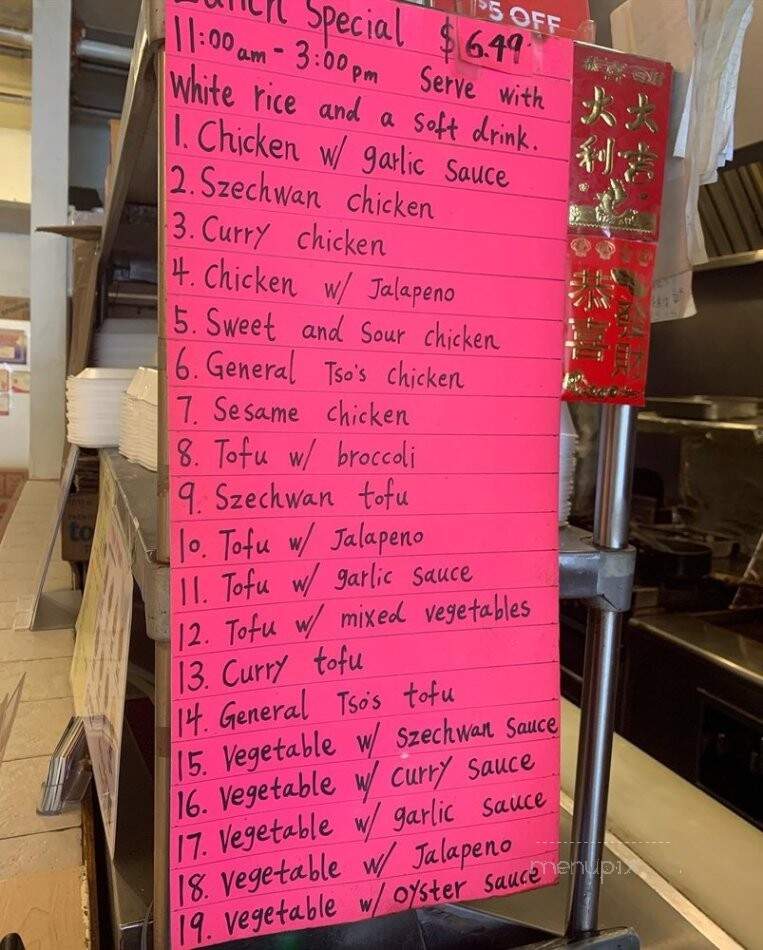 $5 OFF
Lunch Special $6.49
11:00am - 3:00pm Serve with
White rice and a soft drink.
1. Chicken w/ garlic sauce
2. Szechwan chicken
3. Curry chicken
4. Chicken w/ Jalapeno
5. Sweet and Sour chicken
6. General Tso's chicken
7. Sesame chicken
8. Tofu w/ broccoli
9. Szechwan tofu
10. Tofu w/ Jalapeno
11. Tofu w/ garlic sauce
12. Tofu w/ mixed vegetables
13. Curry tofu
14. General Tso's tofu
15. Vegetable w/ Szechwan Sauce
16. Vegetable w/ curry sauce
17. Vegetable w/ garlic sauce
18. Vegetable w/ Jalapeno
19. Vegetable w/ oyster sauce
大吉
大利
恭喜
menupix